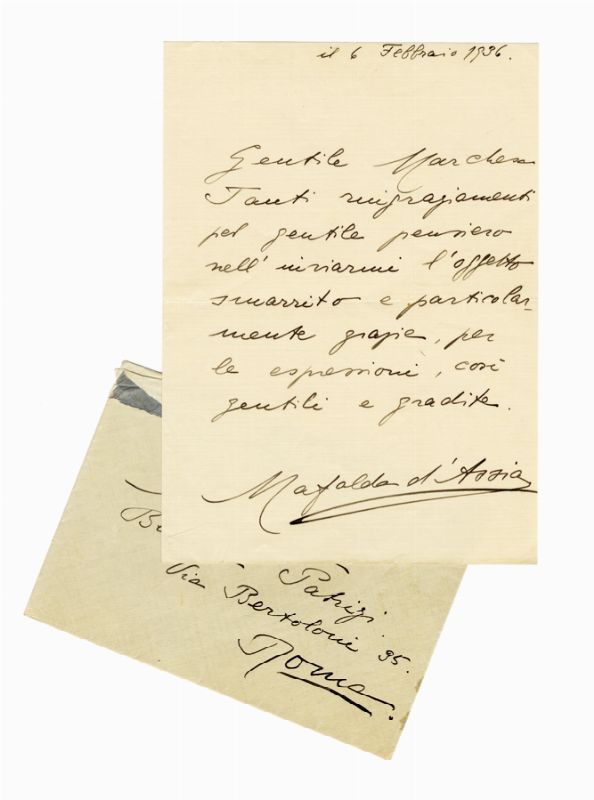 il 6 Febbraio 1936.
Gentile Marchesa
Tanti ringraziamenti
pel gentile pensiero
nell'inviarmi l'oggetto
smarrito e particolar-
mente grazie, per
le espressioni, così
gentili e gradite.
Mafalda d'Assia
Patrizi
Via Bertoloni 35.
Roma.